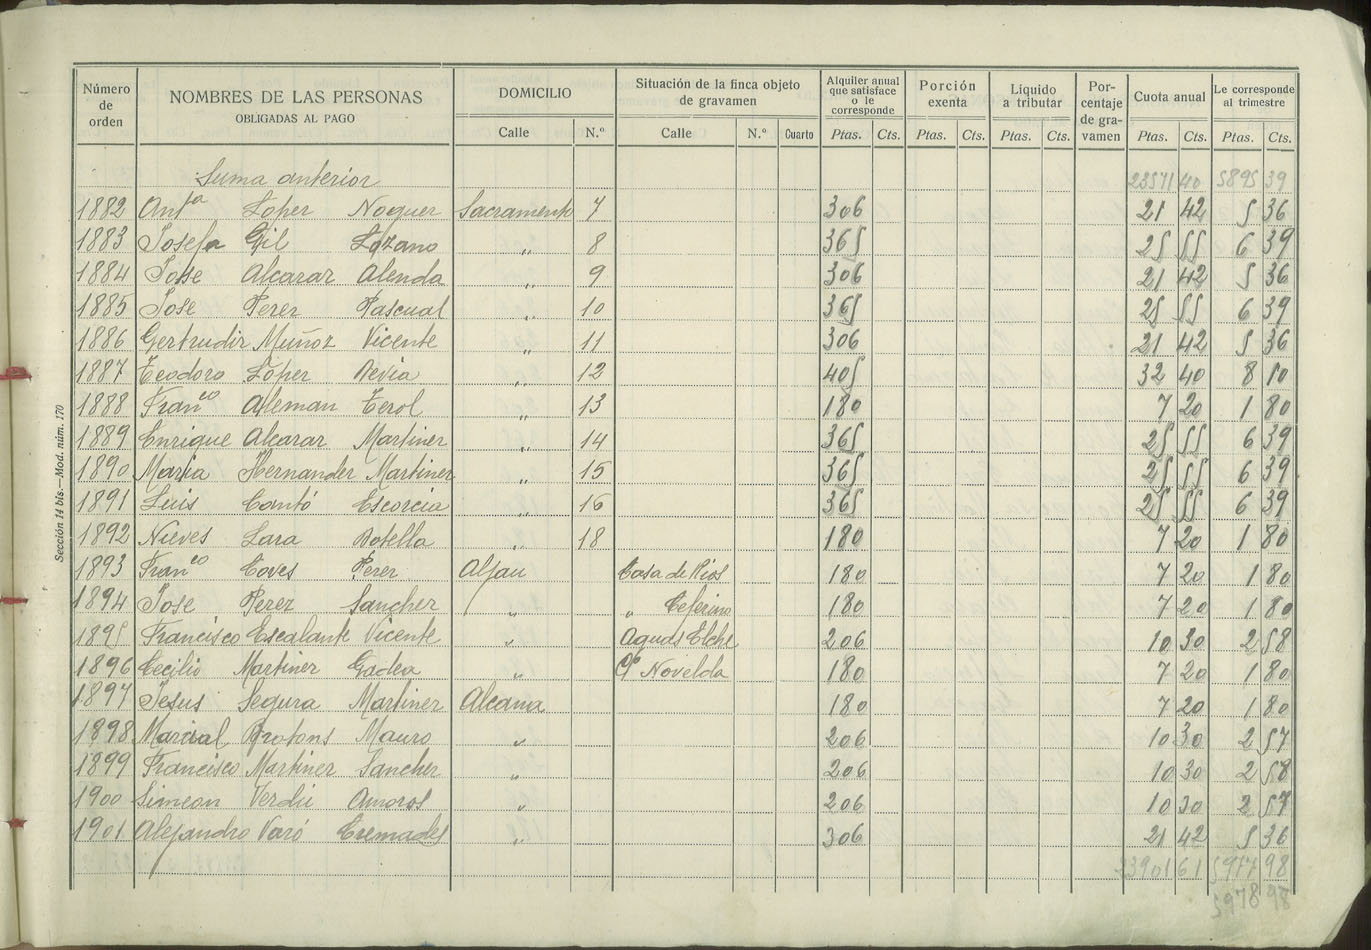 Número de orden | NOMBRES DE LAS PERSONAS OBLIGADAS AL PAGO | DOMICILIO | Situación de la finca objeto de gravamen | Alquiler anual que satisface o le corresponde | Porción exenta | Liquido a tributar | Por-centaje de gra-vamen | Cuota anual | Le corresponde al trimestre
Calle | N.º | Calle | N.º | Cuarto | Ptas. | Cts. | Ptas. | Cts. | Ptas. | Cts. | Ptas. | Cts. | Ptas. | Cts.
Suma anterior 23571 40 5895 39
1882 Antª Loper Noguer Sacramento 7 306 21 42 5 36
1883 Josefa Gil Lozano " 8 365 25 55 6 39
1884 Jose Alcarar Alenda " 9 306 21 42 5 36
1885 Jose Perez Pascual " 10 365 25 55 6 39
1886 Gertrudir Muñoz Vicente " 11 306 21 42 5 36
1887 Teodoro Lóper Devia " 12 405 32 40 8 10
1888 Franco Aleman Terol " 13 180 7 20 1 80
1889 Enrique Alcarar Martiner " 14 365 25 55 6 39
1890 Maria Hernander Martiner " 15 365 25 55 6 39
1891 Luis Cantó Escorcia " 16 365 25 55 6 39
1892 Nieves Lara Botella " 18 180 7 20 1 80
1893 Franco Coves Perez Aljau Casa de Rios 180 7 20 1 80
1894 Jose Perez Sancher " " Ceferino 180 7 20 1 80
1895 Francisco Escalante Vicente " Aguas Elche 206 10 30 2 58
1896 Cecilio Martiner Gadea " Novelda 180 7 20 1 80
1897 Jesus Segura Martiner Alcana 180 7 20 1 80
1898 Marcial Brotons Mauro " 206 10 30 2 57
1899 Francisco Martiner Sancher " 206 10 30 2 58
1900 Simeon Verdú Amoros " 206 10 30 2 57
1901 Alejandro Varó Cremades " 306 21 42 5 36
23901 61 5977 98
5978 98
Sección 14 bis.—Mod. núm. 170